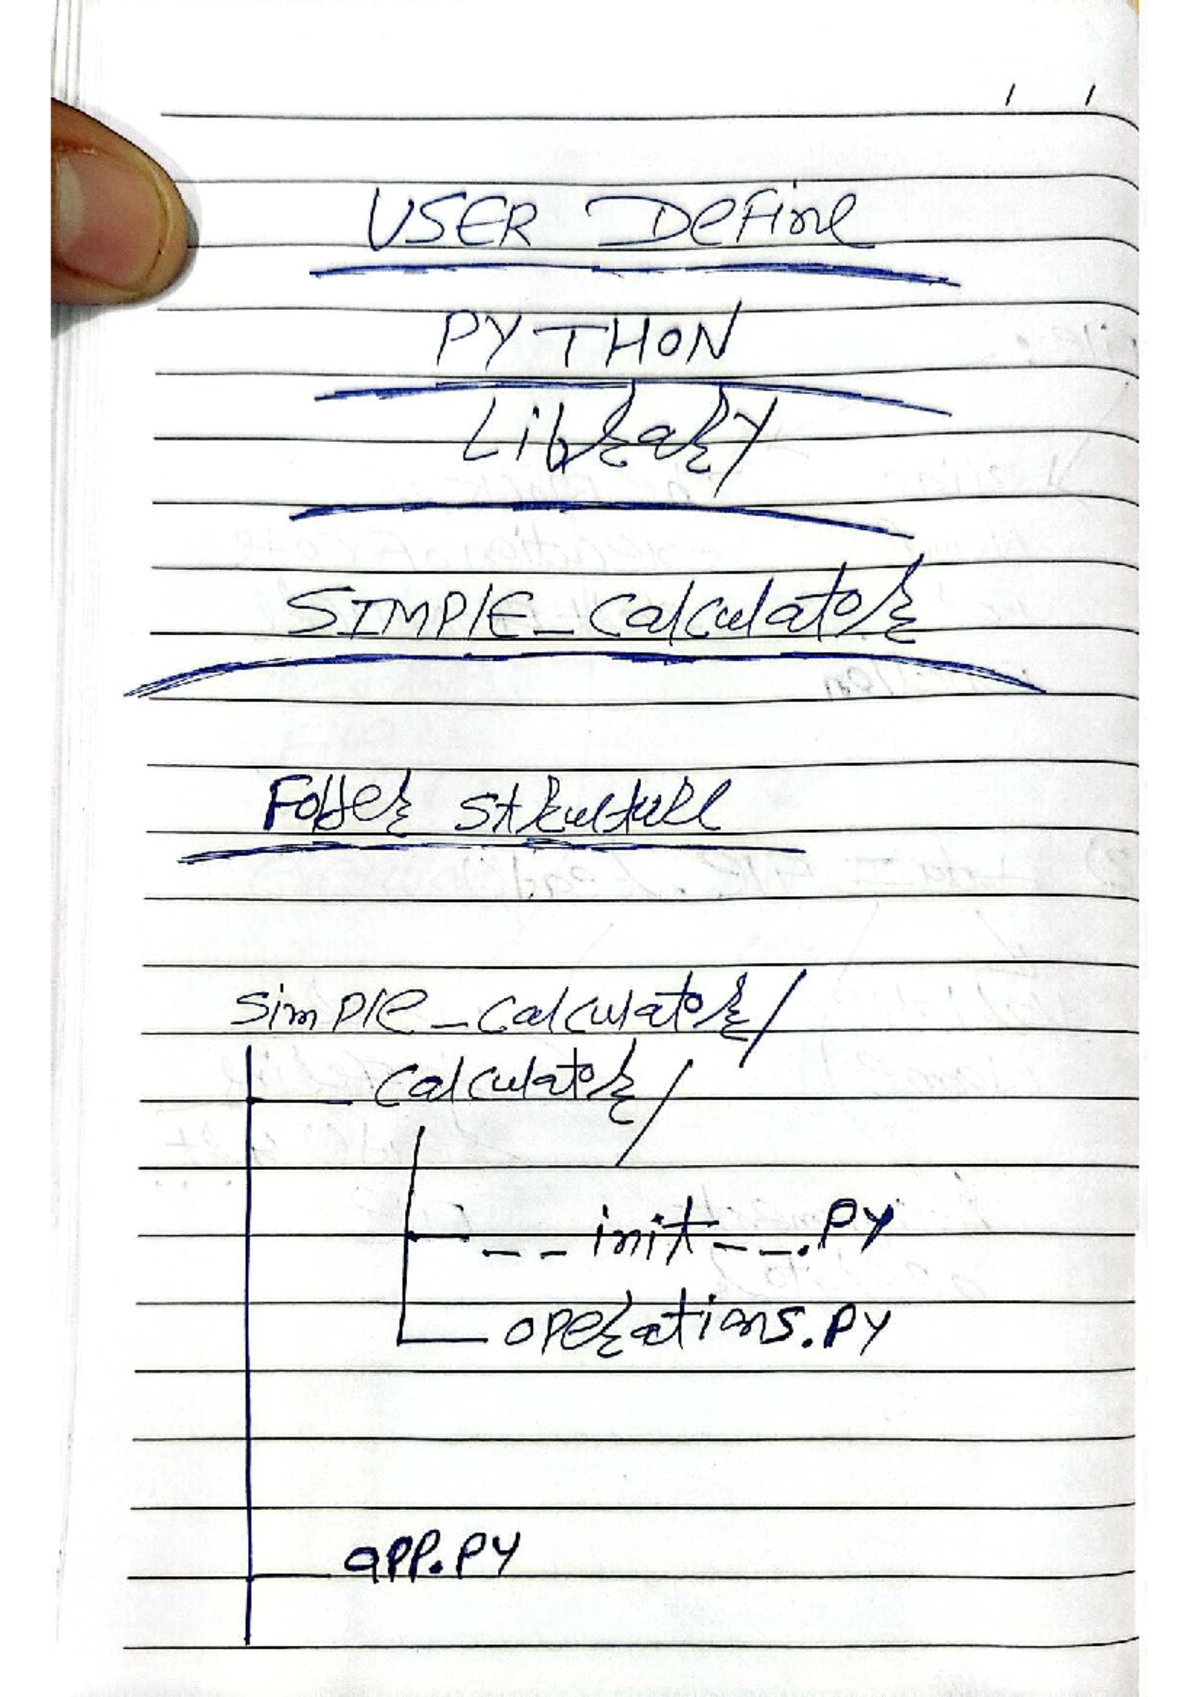 USER Define
PYTHON
Library
SIMPLE_Calculator
Folder structure
simple_calculator/
calculator/
__init__.py
operations.py
app.py